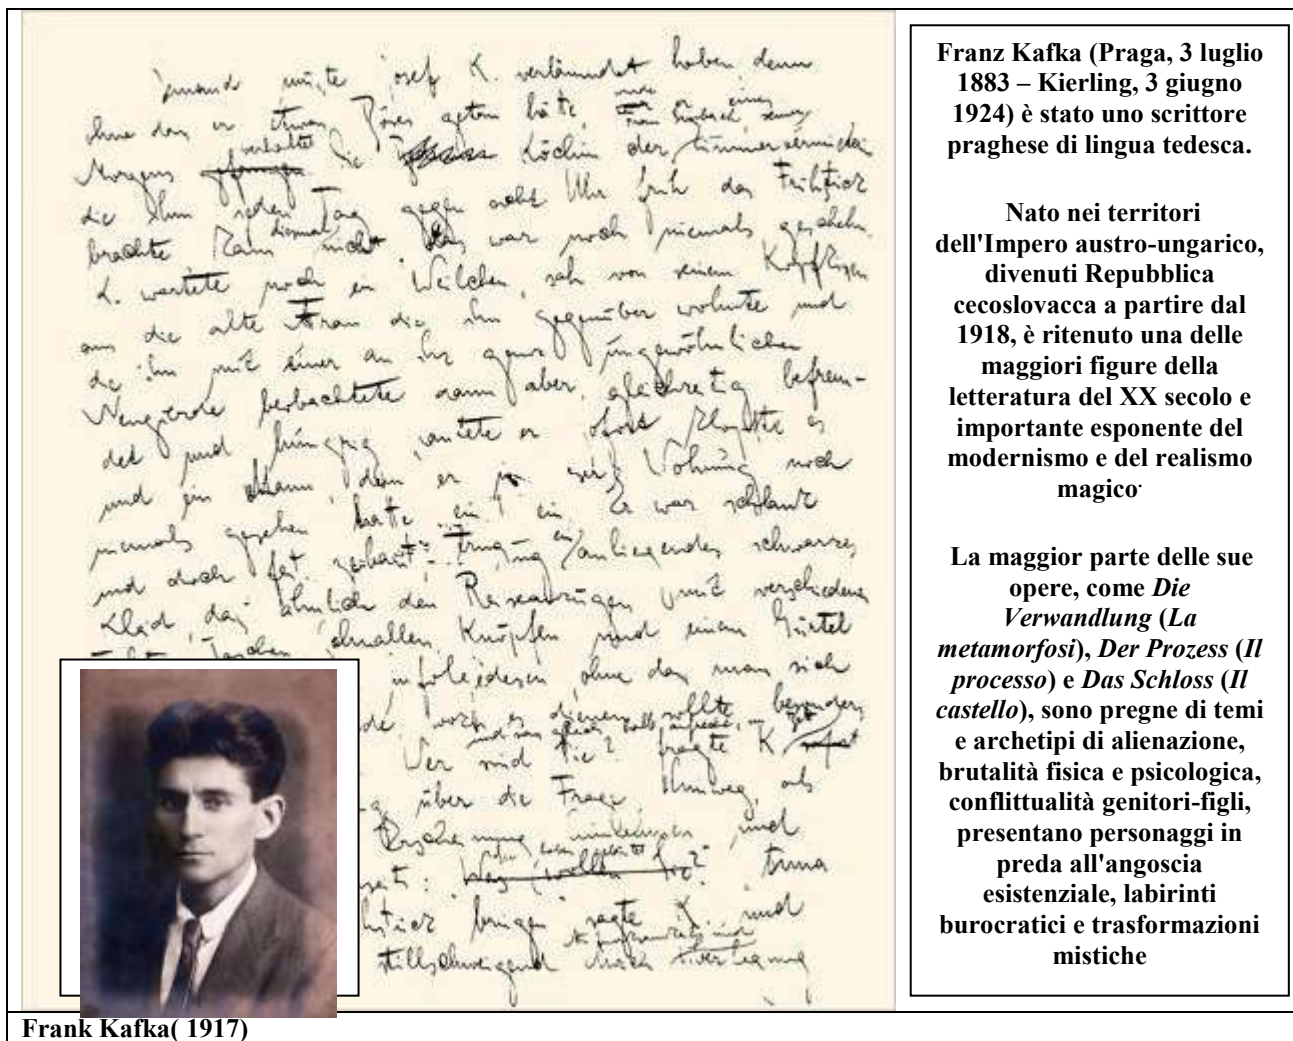 Jemand mußte Josef K. verläumdet haben, denn
ohne daß er etwas Böses getan hätte,
Morgens die Köchin der
die ihm jeden Tag gegen acht Uhr früh das Frühstück
brachte kam diesmal nicht. Das war noch niemals geschehn.
K. wartete noch ein Weilchen, sah von seinem Kopfkissen
aus die alte Frau die ihm gegenüber wohnte und
die ihn mit einer an ihr ganz ungewöhnlichen
Neugierde beobachtete dann aber, gleichzeitig befrem-
det und hungrig, läutete er. Sofort klopfte es
und ein Mann, den er in Wohnung noch
niemals gesehen hatte ein. Er war schlank
und doch fest gebaut, er trug ein anliegendes schwarzes
Kleid, das ähnlich den Reiseanzügen mit verschiedenen
Taschen, Schnallen, Knöpfen und einem Gürtel
infolgedessen, ohne daß man sich
wozu es dienen sollte, besonders
Wer sind Sie? fragte K.
über die Frage hinweg, als
Erscheinung und
Anna
bringen sagte K. und
stillschweigend
Franz Kafka (Praga, 3 luglio
1883 – Kierling, 3 giugno
1924) è stato uno scrittore
praghese di lingua tedesca.
Nato nei territori
dell'Impero austro-ungarico,
divenuti Repubblica
cecoslovacca a partire dal
1918, è ritenuto una delle
maggiori figure della
letteratura del XX secolo e
importante esponente del
modernismo e del realismo
magico.
La maggior parte delle sue
opere, come Die
Verwandlung (La
metamorfosi), Der Prozess (Il
processo) e Das Schloss (Il
castello), sono pregne di temi
e archetipi di alienazione,
brutalità fisica e psicologica,
conflittualità genitori-figli,
presentano personaggi in
preda all'angoscia
esistenziale, labirinti
burocratici e trasformazioni
mistiche
Frank Kafka( 1917)